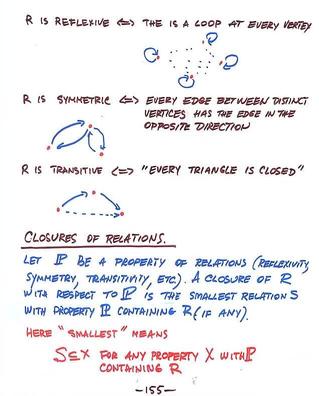 R IS REFLEXIVE <=> THE IS A LOOP AT EVERY VERTEX
R IS SYMMETRIC <=> EVERY EDGE BETWEEN DISTINCT
VERTICES HAS THE EDGE IN THE
OPPOSITE DIRECTION
R IS TRANSITIVE <=> "EVERY TRIANGLE IS CLOSED"
CLOSURES OF RELATIONS.
LET ℙ BE A PROPERTY OF RELATIONS (REFLEXIVITY,
SYMMETRY, TRANSITIVITY, ETC). A CLOSURE OF R
WITH RESPECT TO ℙ IS THE SMALLEST RELATION S
WITH PROPERTY ℙ CONTAINING R (IF ANY).
HERE "SMALLEST" MEANS
S⊆X FOR ANY PROPERTY X WITH ℙ
CONTAINING R
—155—